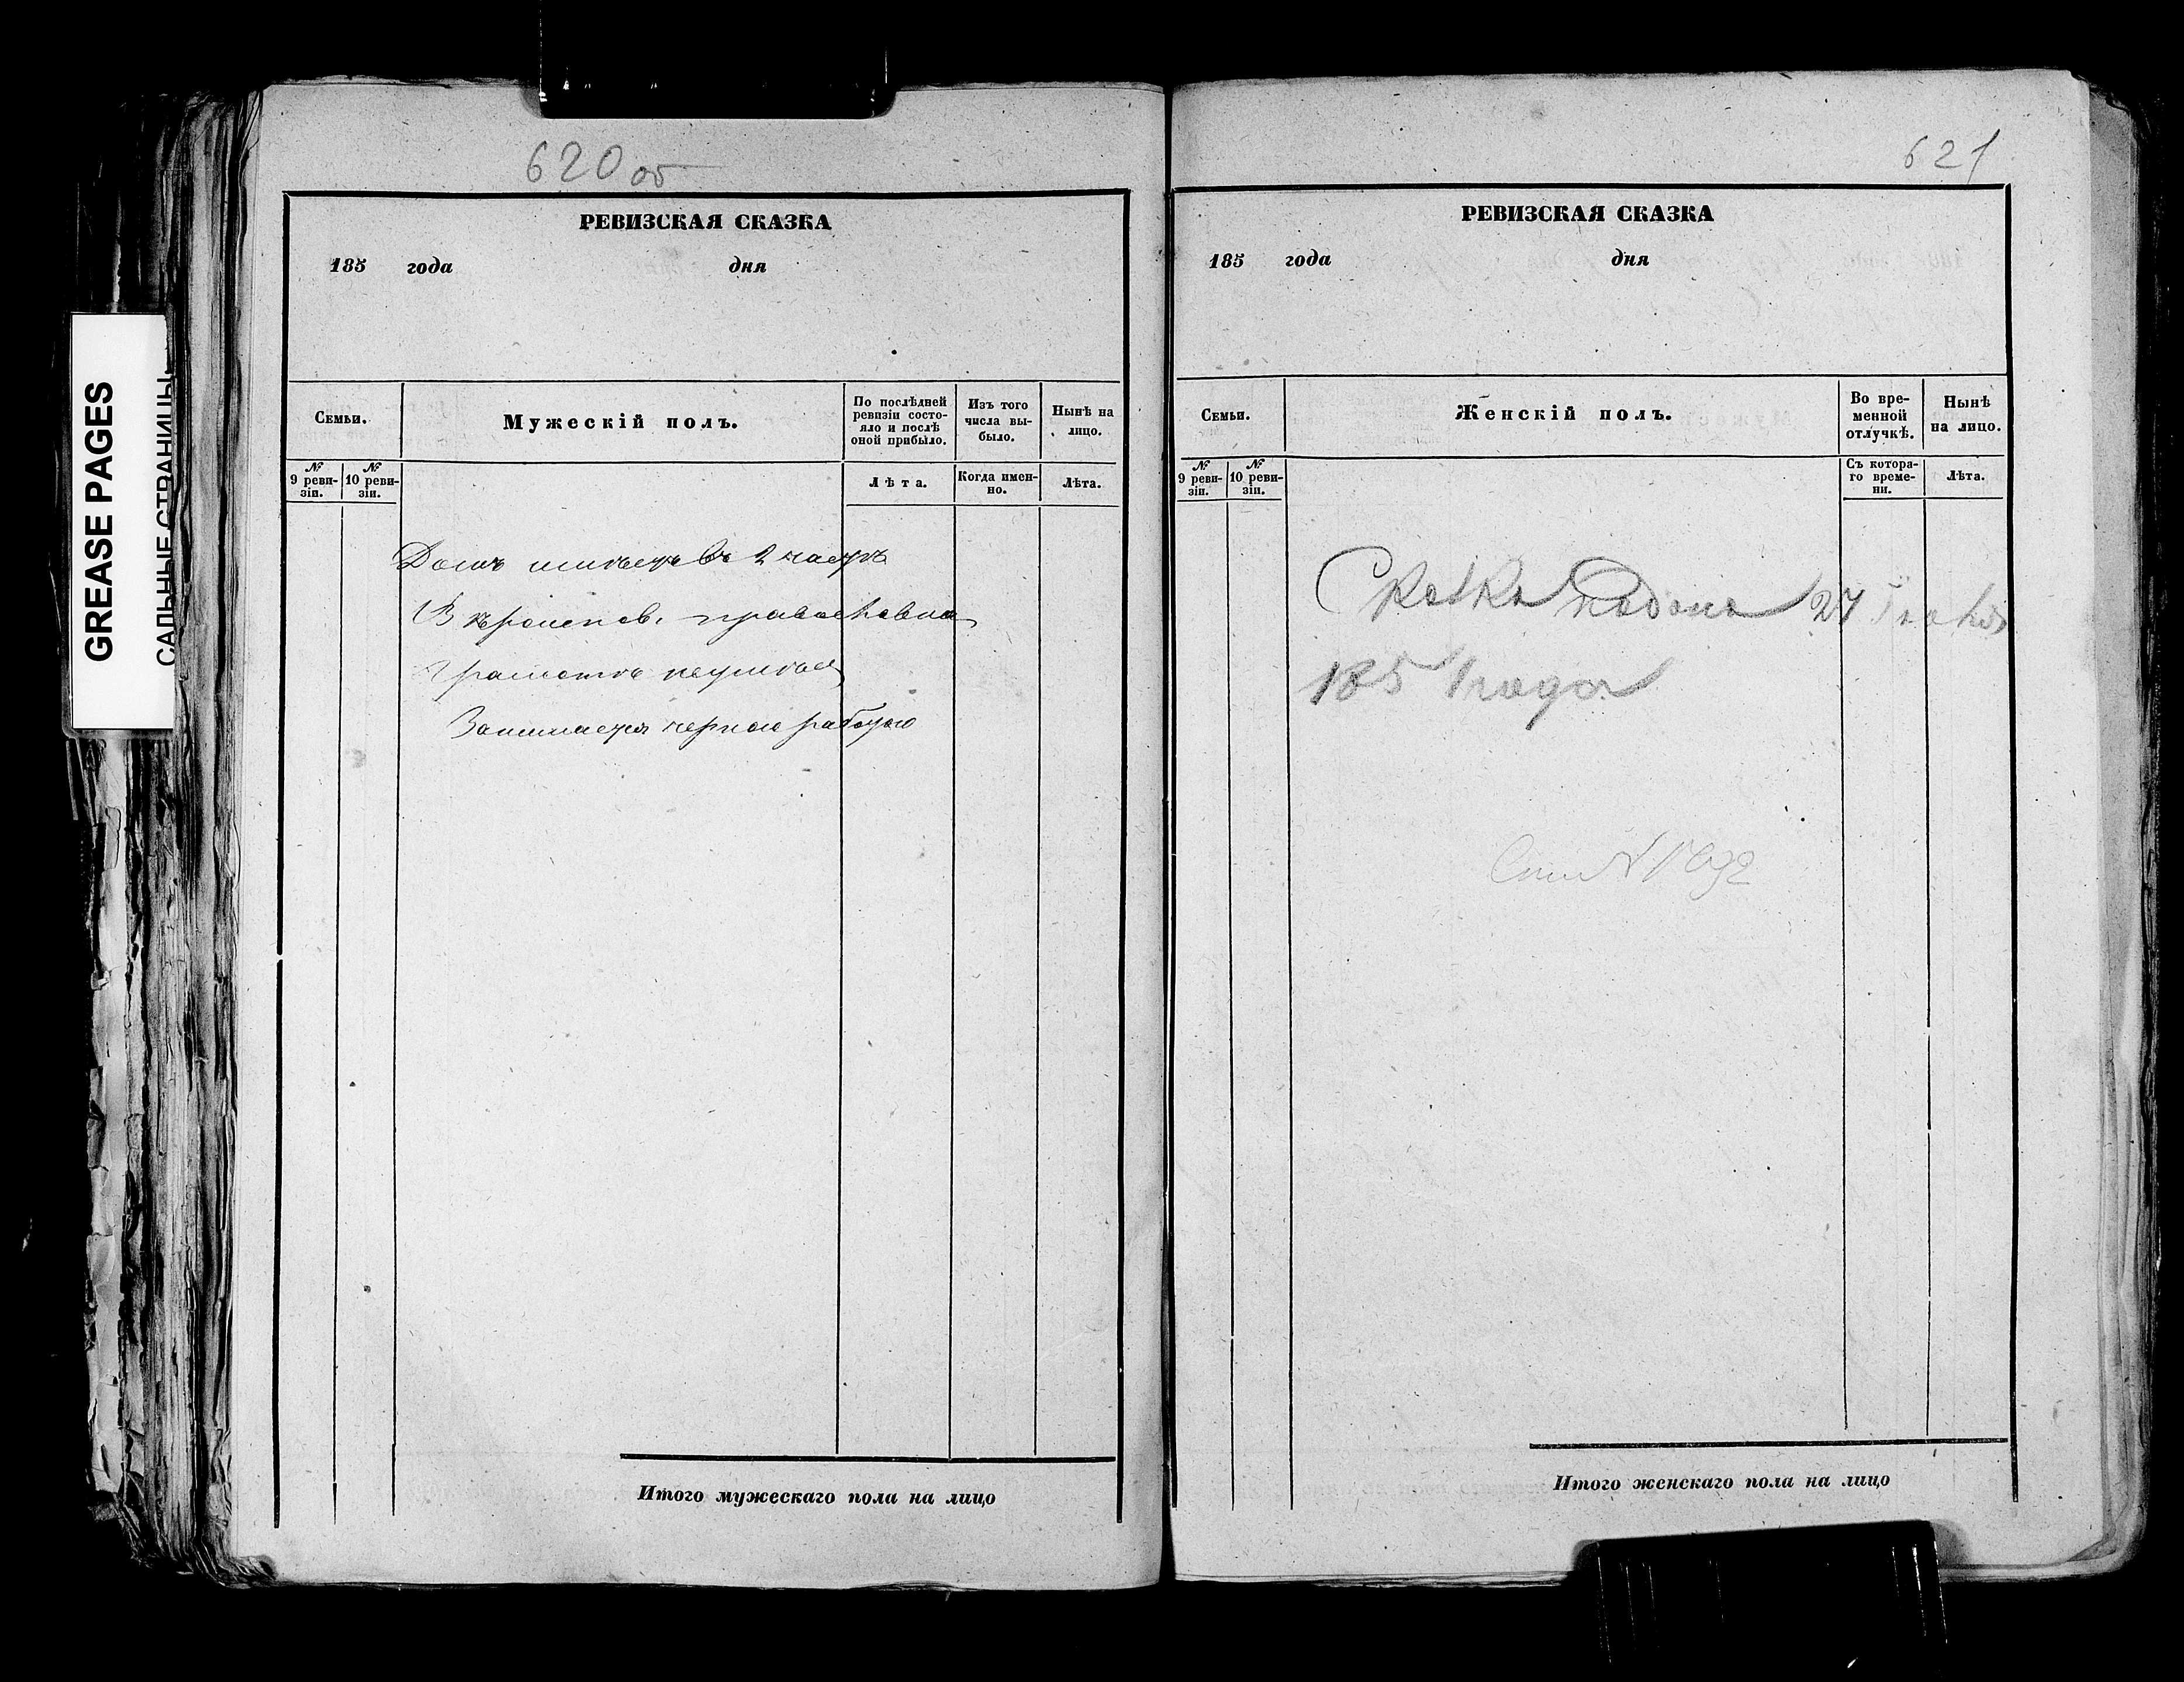 GREASE PAGES
САЛЬНЫЕ СТРАНИЦЫ
620 об
РЕВИЗСКАЯ СКАЗКА
185 года дня
Семьи.
Мужескій полъ.
По послѣдней ревизіи состояло и послѣ оной прибыло.
Изъ того числа выбыло.
Нынѣ на лицо.
№ 9 ревизіи.
№ 10 ревизіи.
Лѣта.
Когда именно.
Лѣта.
Домъ имѣетъ въ 2 части
Вѣроисповѣ. православна
Грамотѣ неумѣет
Занимается черною работою
Итого мужескаго пола на лицо
621
РЕВИЗСКАЯ СКАЗКА
185 года дня
Семьи.
Женскій полъ.
Во временной отлучкѣ.
Нынѣ на лицо.
№ 9 ревизіи.
№ 10 ревизіи.
Съ котораго времени.
Лѣта.
Сказка подана 27
185 года
Итого женскаго пола на лицо